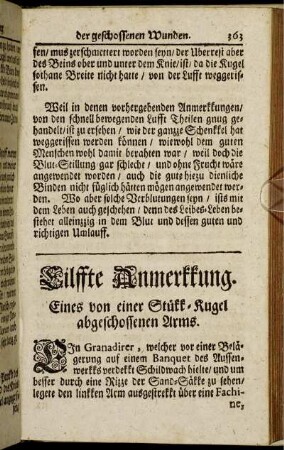 der geschossenen Wunden. 363
sen/ mus zerschmettert worden seyn/ der Uberrest aber
des Beins ober und unter dem Knie/ ist/ da die Kugel
sothane Breite nicht hatte / von der Lufft weggeris-
sen.
Weil in denen vorhergehenden Anmerkkungen/
von den schnell bewegenden Lufft Theilen gnug ge-
handelt/ ist zu ersehen / wie der gantze Schenkkel hat
weggerissen werden können / wiewohl dem guten
Menschen wohl damit berahten war / weil doch die
Blut-Stillung gar schlecht / und ohne Frucht wäre
angewendet worden / auch die gute hiezu dienliche
Binden nicht füglich hätten mögen angewendet wer-
den. Wo aber solche Verblutungen seyn / ists mit
dem Leben auch geschehen / denn des Leibes-Leben be-
stehet alleinzig in dem Blut und dessen guten und
richtigen Umlauff.
Eilffte Anmerkkung.
Eines von einer Stükk-Kugel
abgeschossenen Arms.
EIn Granadirer, welcher vor einer Belä-
gerung auf einem Banquet des Aussen-
werkks verdekkt Schildwach hielte/ und um
besser durch eine Rizze der Sand-Säkke zu sehen/
legete den linkken Arm ausgestrekkt über eine Fachi-
ne,